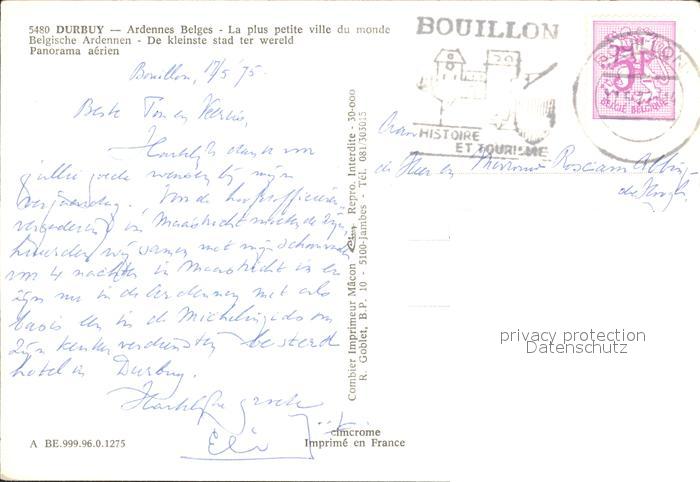 5480 DURBUY — Ardennes Belges - La plus petite ville du monde
Belgische Ardennen - De kleinste stad ter wereld
Panorama aérien
Bouillon, 17/5 '75.
Beste Ton en
Hartelijk dank voor
jullie goede wensen bij mijn
verjaardag. Voor de
vergadering in Maastricht
wij samen met mijn schoonvader
4 nachten in Maastricht en
zijn nu in de Ardennen met als
basis een in de Michelingids om
zijn keuken verdiensten besterd
hotel in Durbuy.
Hartelijke groeten
A BE.999.96.0.1275
cimcrome
Imprimé en France
Combier Imprimeur Mâcon Repro. Interdite - 30-000
R. Goblet, B.P. 10 - 5100-Jambes - Tél. 081/303015
BOUILLON
HISTOIRE
ET TOURISME
5F
BELGIE BELGIQUE
Aan
de Heer en Mevrouw
privacy protection
Datenschutz